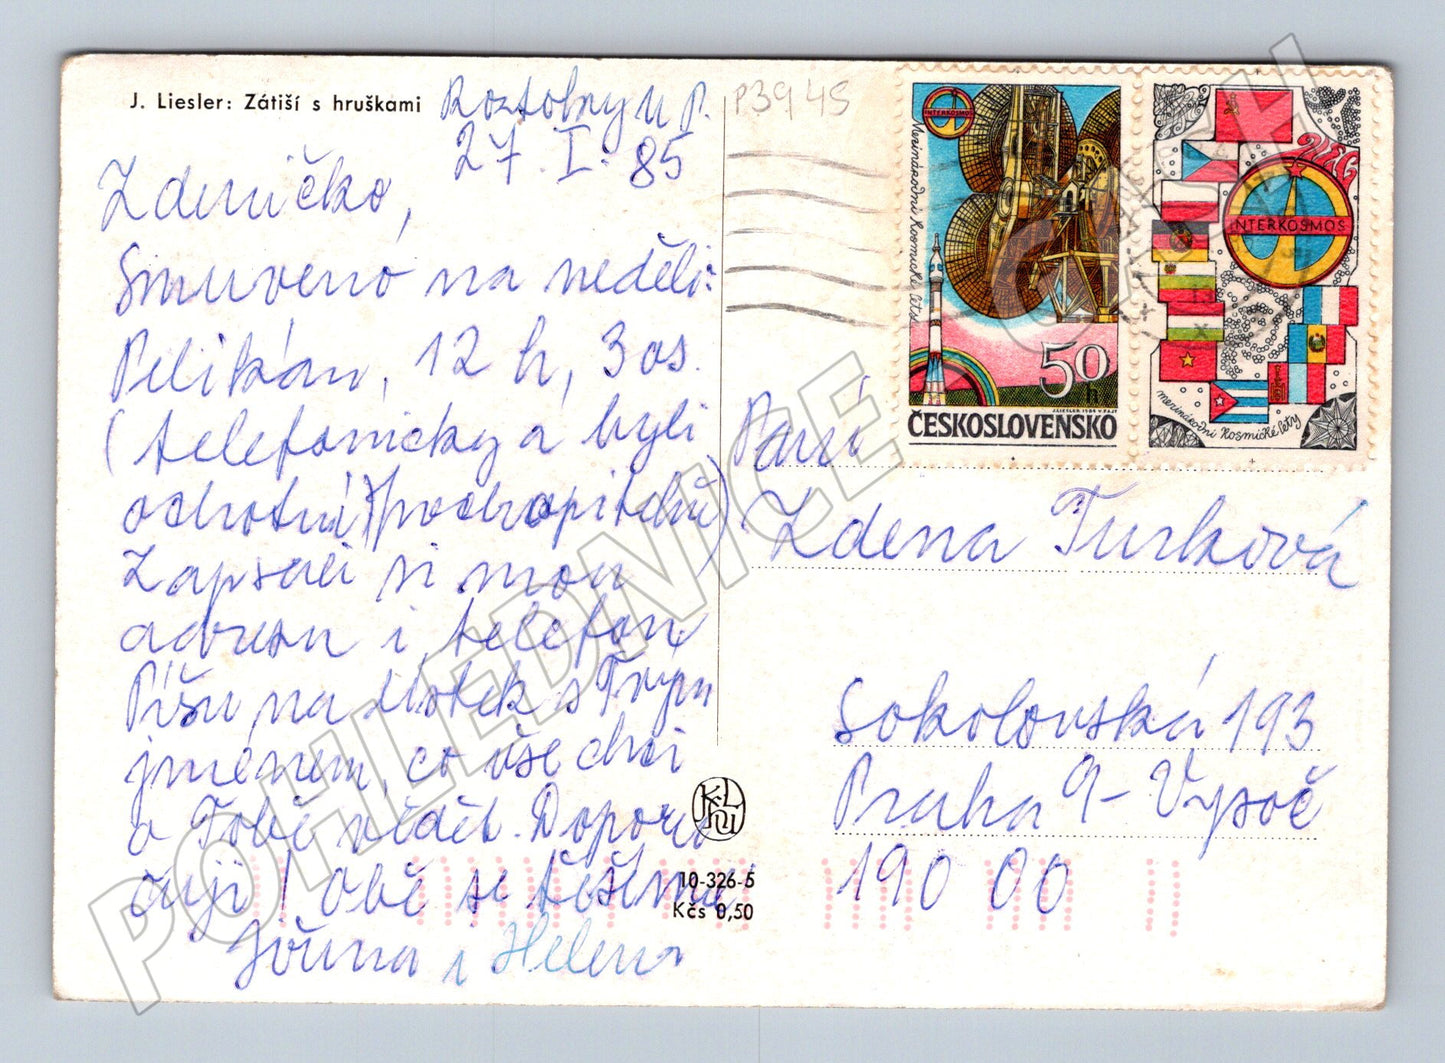 J. Liesler: Zátiší s hruškami
Roztoky u P.
27. I. 85
P3945
Zdeničko,
Smuveno na neděli:
Pelikán, 12 h, 3 os.
(telefonicky a byli
ochotní)
Zapsali si mou
adresu i telefon
Píšu na lístek s Tvým
jménem, co vše chci
o Tobě vědět. Doporu-
čuji! Obě se těšíme
Jiřina i Helena
INTERKOSMOS
Mezinárodní kosmické lety
50 h
J. LIESLER 1980 V. FAJT
ČESKOSLOVENSKO
INTERKOSMOS
mezinárodní kosmické lety
Paní
Zdena Turková
Sokolovská 193
Praha 9 - Vysoč
190 00
10-326-5
Kčs 0,50
POHLEDNICE CASH